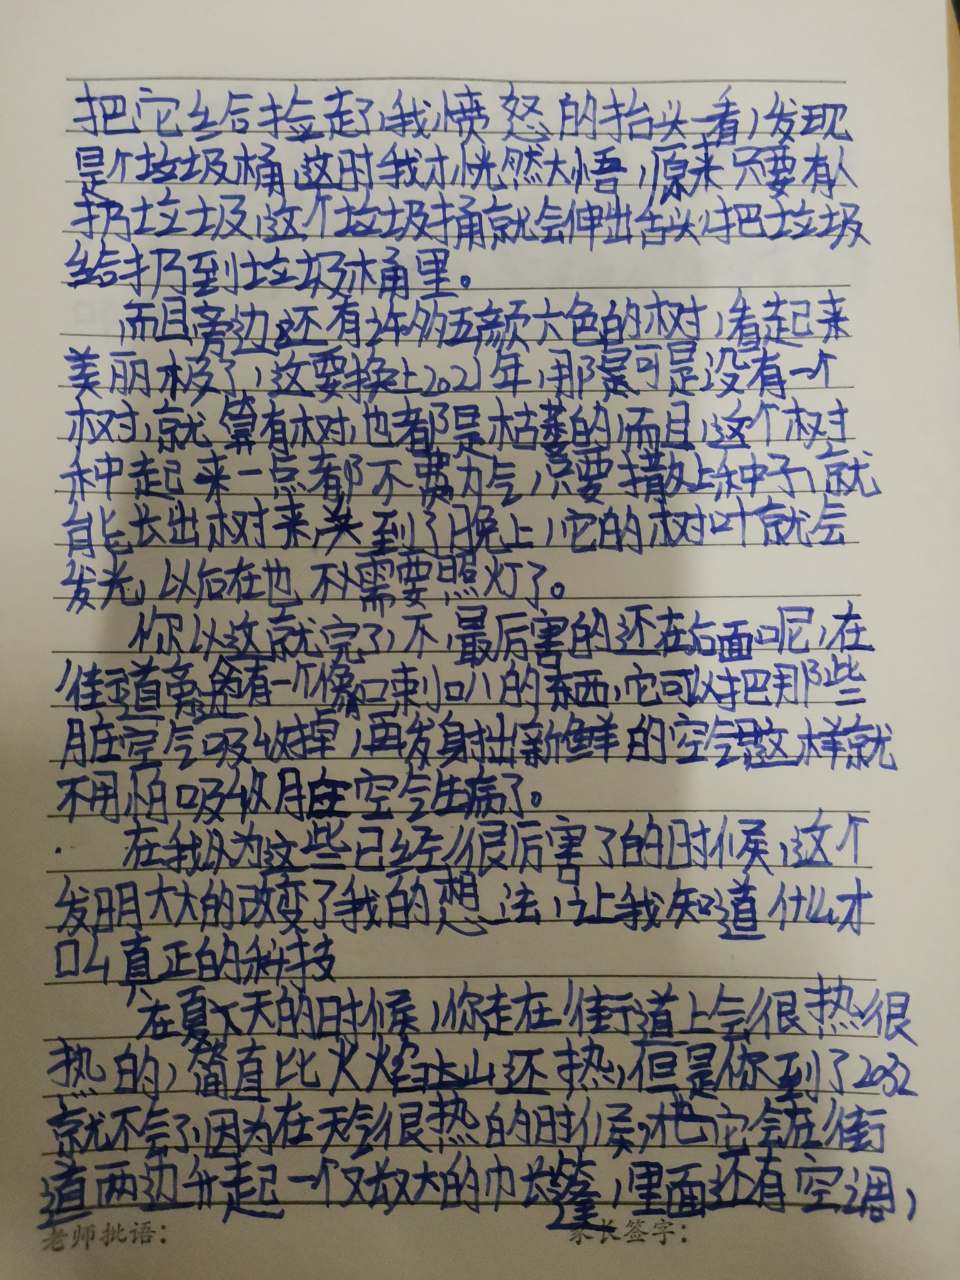 把它给捡起了,我愤怒的抬头一看,发现
是个垃圾桶,这时我才恍然大悟,原来只要有人
扔垃圾,这个垃圾捅就会伸出舌头,把垃圾
给扔到垃圾桶里。
而且旁边,还有许多五颜六色的树,看起来
美丽极了,这要换上2021年,那是可是没有一个
树,就算有树,也都是枯萎的,而且,这个树
种起来一点都不费力气,只要撒上种子,就
能长出树来,到了晚上,它的树叶就会
发光,以后在也不需要照灯了。
你以这就完了,不,最厉害的还在后面呢,在
街道旁有一个像喇叭的东西,它可以把那些
脏空气吸收掉,再发射出新鲜的空气,这样就
不用怕吸收脏空气生病了。
在我以为这些已经很厉害了的时候,这个
发明大大的改变了我的想法,让我知道什么才
叫真正的科技
在夏天的时候,你走在街道上会很热很
热的,简直比火焰山还热,但是你到了2032
就不会了,因为在天气很热的时候,它会在街
道两边升起一个又大的巾长篷,里面还有空调,
老师批语: 家长签字: